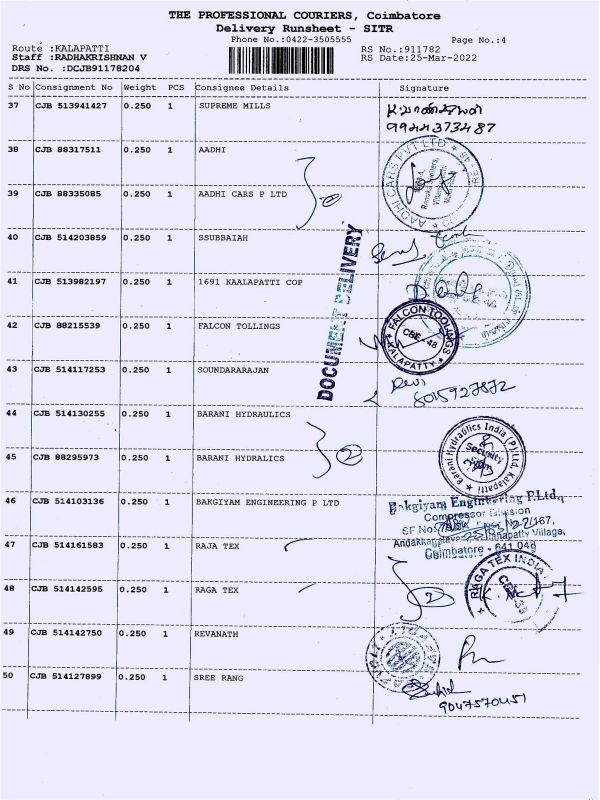 THE PROFESSIONAL COURIERS, Coimbatore
Delivery Runsheet - SITR
Phone No.:0422-3505555
Page No.:4
Route :KALAPATTI
RS No.:911782
Staff :RADHAKRISHNAN V
RS Date:25-Mar-2022
DRS No. :DCJB91178204
S No Consignment No Weight PCS Consignee Details Signature
37 CJB 513941427 0.250 1 SUPREME MILLS
9944373487
38 CJB 88317511 0.250 1 AADHI
AADHI CARS PVT LTD
39 CJB 88335085 0.250 1 AADHI CARS P LTD
40 CJB 514203859 0.250 1 SSUBBAIAH
DOCUMENT DELIVERY
41 CJB 513982197 0.250 1 1691 KAALAPATTI COP
42 CJB 88215539 0.250 1 FALCON TOLLINGS
FALCON TOOLINGS
CBE - 48
KALAPATTY
43 CJB 514117253 0.250 1 SOUNDARARAJAN
Devi
8015927872
44 CJB 514130255 0.250 1 BARANI HYDRAULICS
Barani Hydraulics India (P) Ltd, Kalapatti
Security
45 CJB 88295973 0.250 1 BARANI HYDRALICS
46 CJB 514103136 0.250 1 BAKGIYAM ENGINEERING P LTD
Bakgiyam Engineering P.Ltd.,
Compressor Division
SF No:
Village,
Coimbatore - 641 048
47 CJB 514161583 0.250 1 RAJA TEX
48 CJB 514142595 0.250 1 RAGA TEX
RAGA TEX INDIA
49 CJB 514142750 0.250 1 REVANATH
50 CJB 514127899 0.250 1 SREE RANG
9047570451